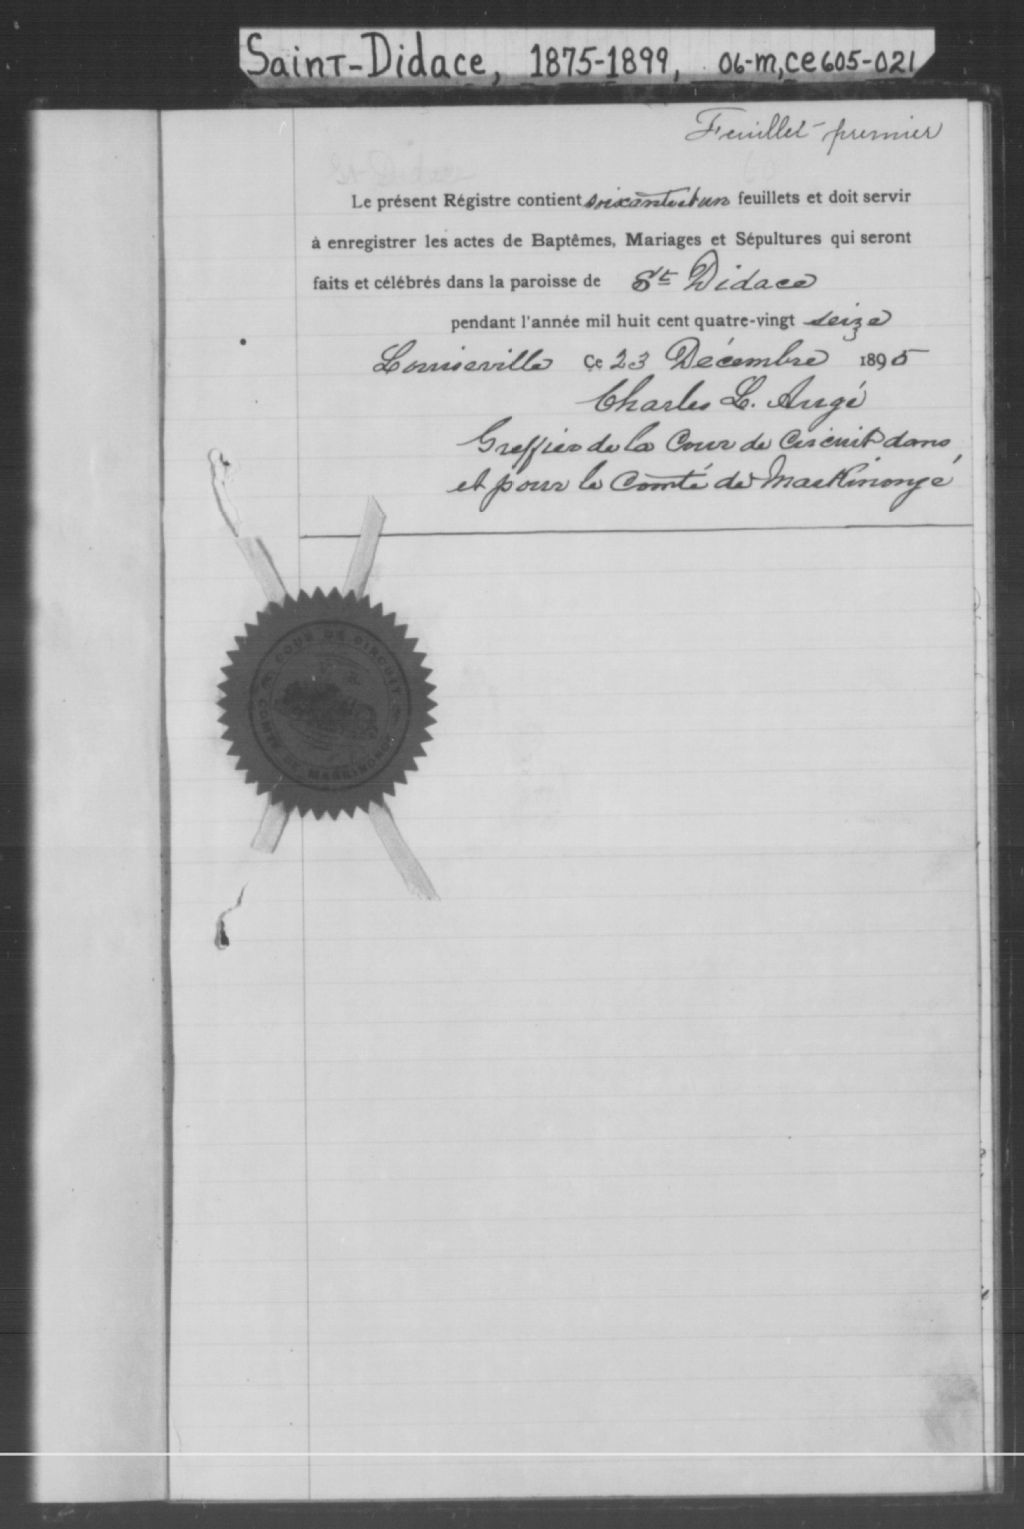 Saint-Didace, 1875-1899, 06-M,CE605-021
Feuillet premier
St Didace 60
Le présent Régistre contient soixante et un feuillets et doit servir
à enregistrer les actes de Baptêmes, Mariages et Sépultures qui seront
faits et célébrés dans la paroisse de St Didace
pendant l'année mil huit cent quatre-vingt seize
Louiseville Ce 23 Décembre 1895
Charles L. Augé
Greffier de la Cour de Circuit dans
et pour le Comté de Maskinongé
COUR DE CIRCUIT
COMTÉ DE MASKINONGÉ